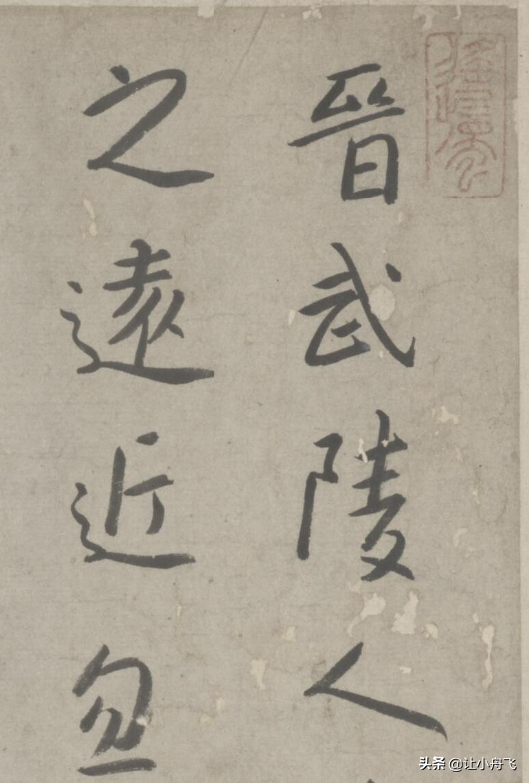 晉武陵人
之遠近忽
头条 @让小舟飞